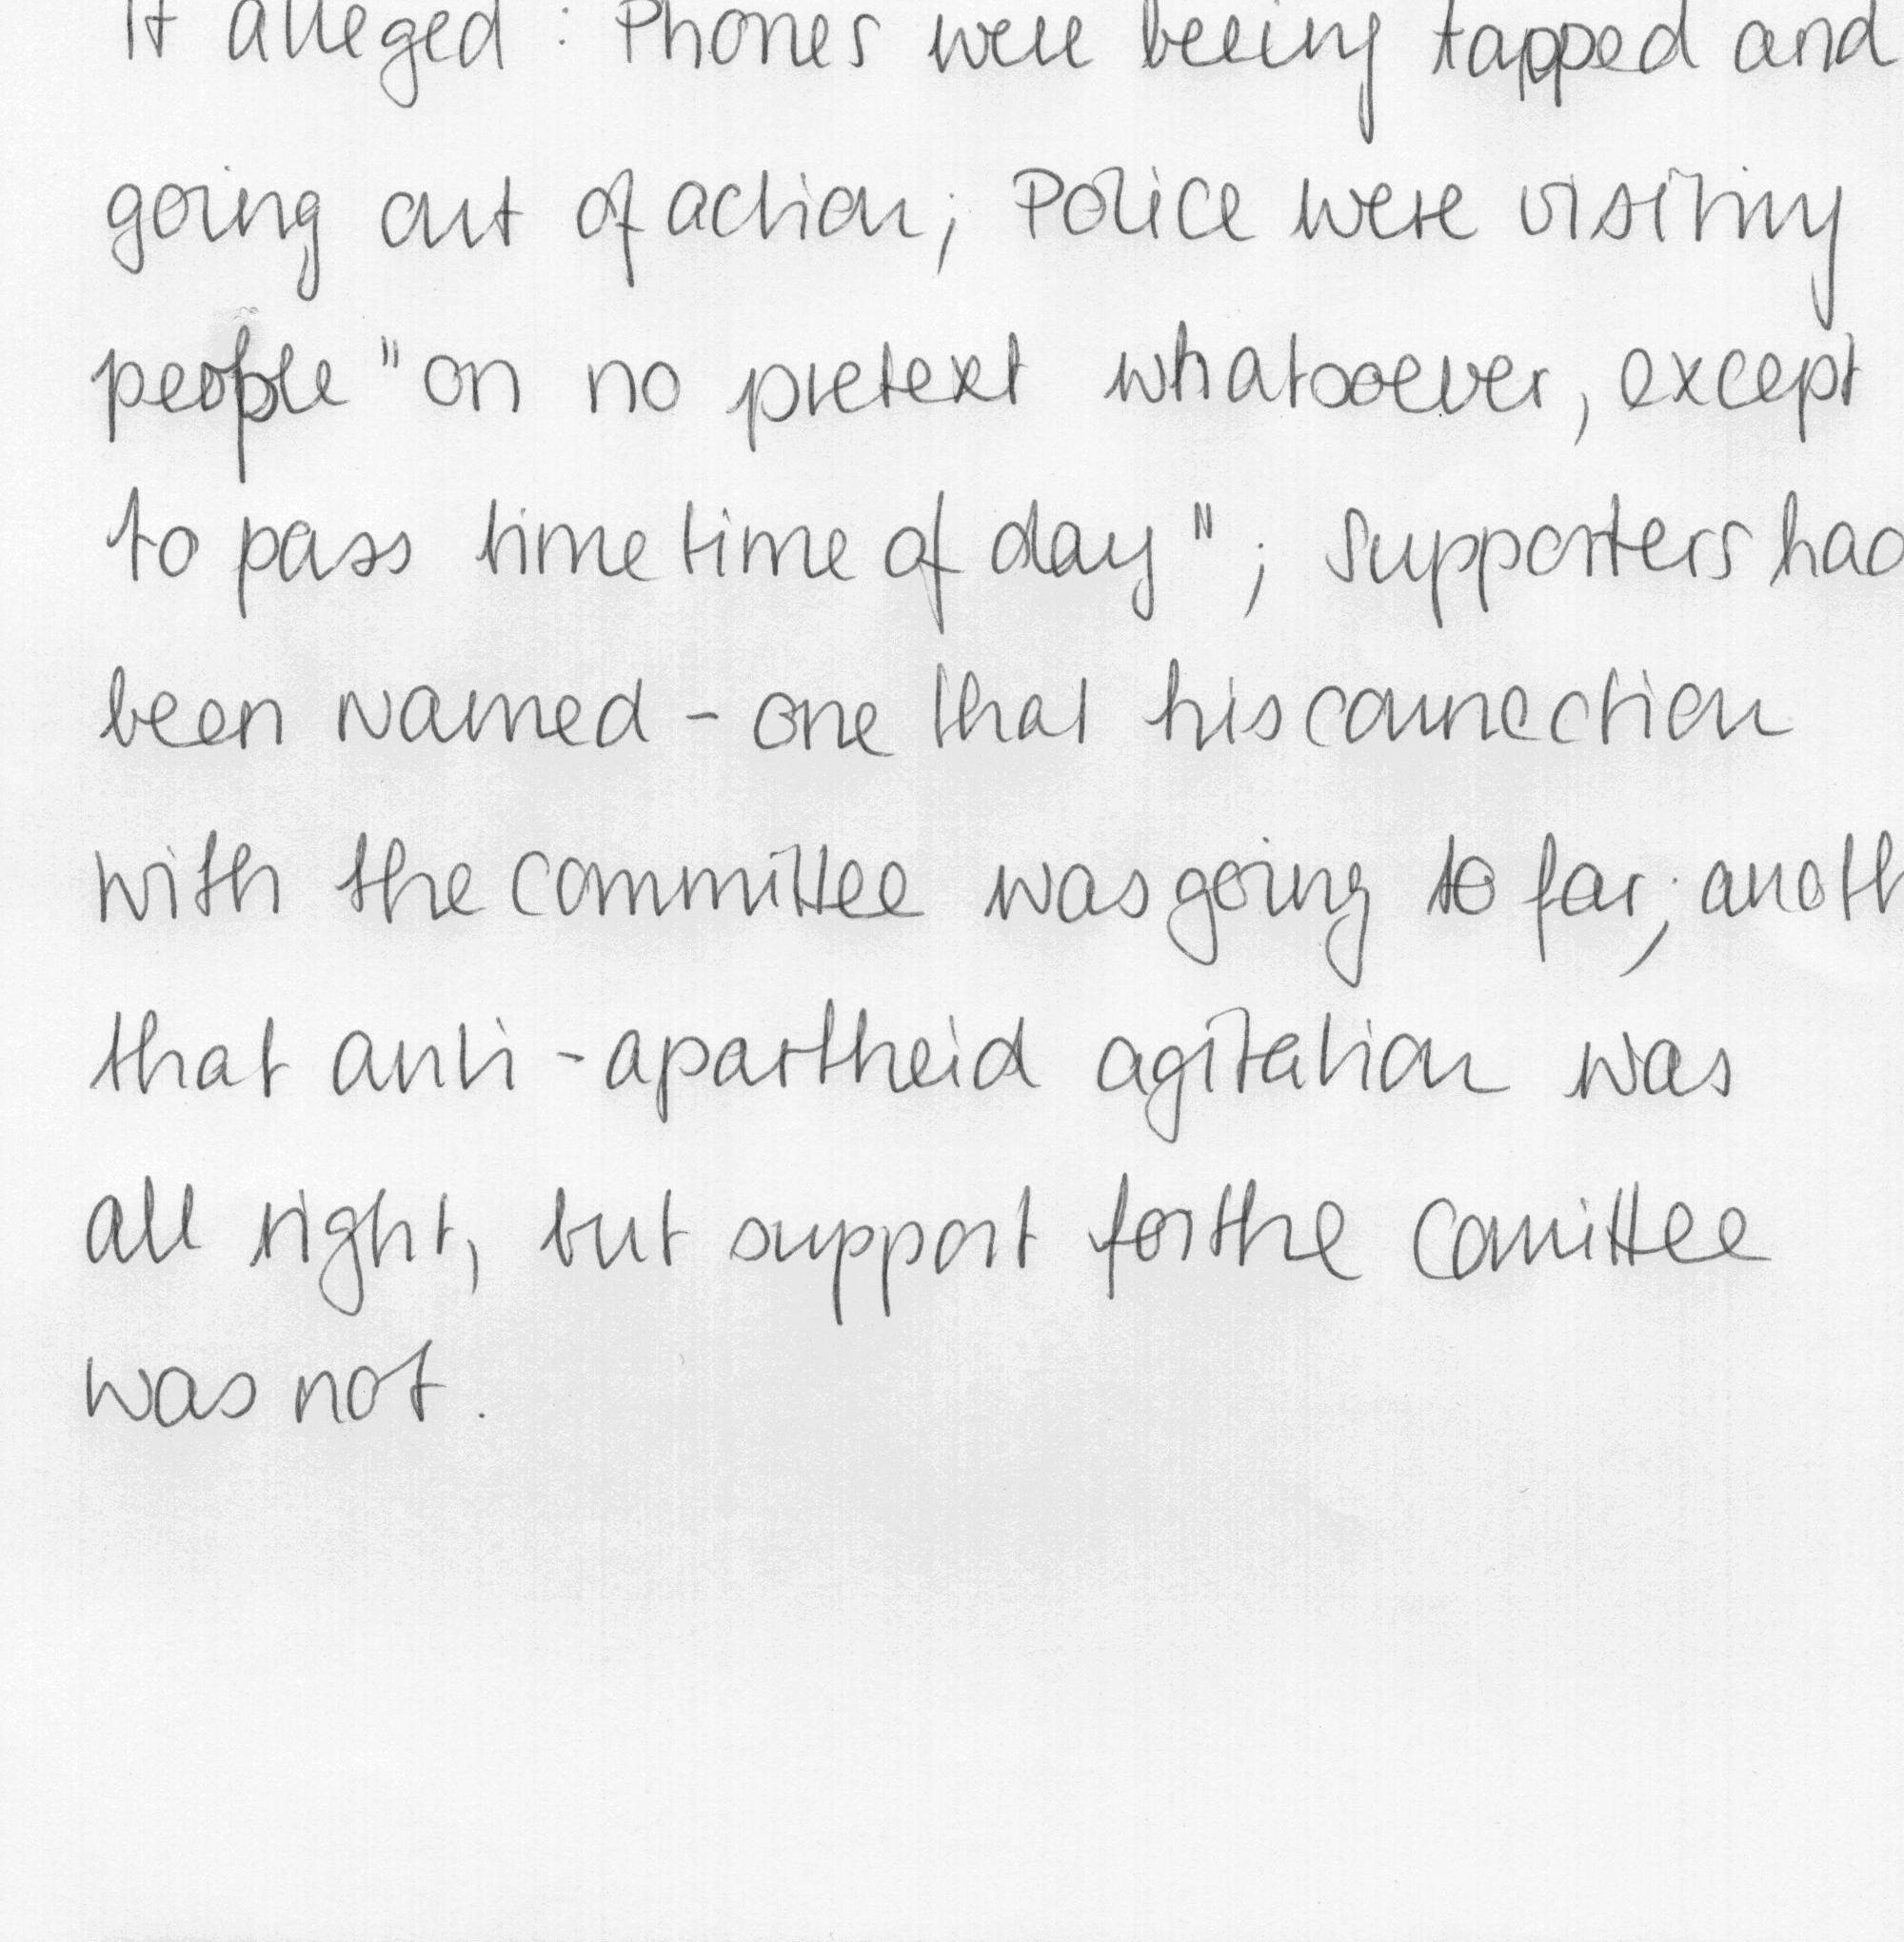 It alleged : Phones were beeing tapped and
going out of action; Police were visiting
people "on no pretext whatsoever, except
to pass time time of day"; Supporters had
been named - one that his connection
with the committee was going to far; anoth
that anti-apartheid agitation was
all right, but support for the Comittee
was not.